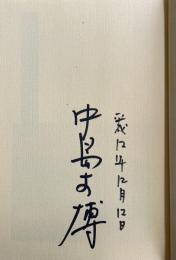 平成12年12月12日
中島丈博